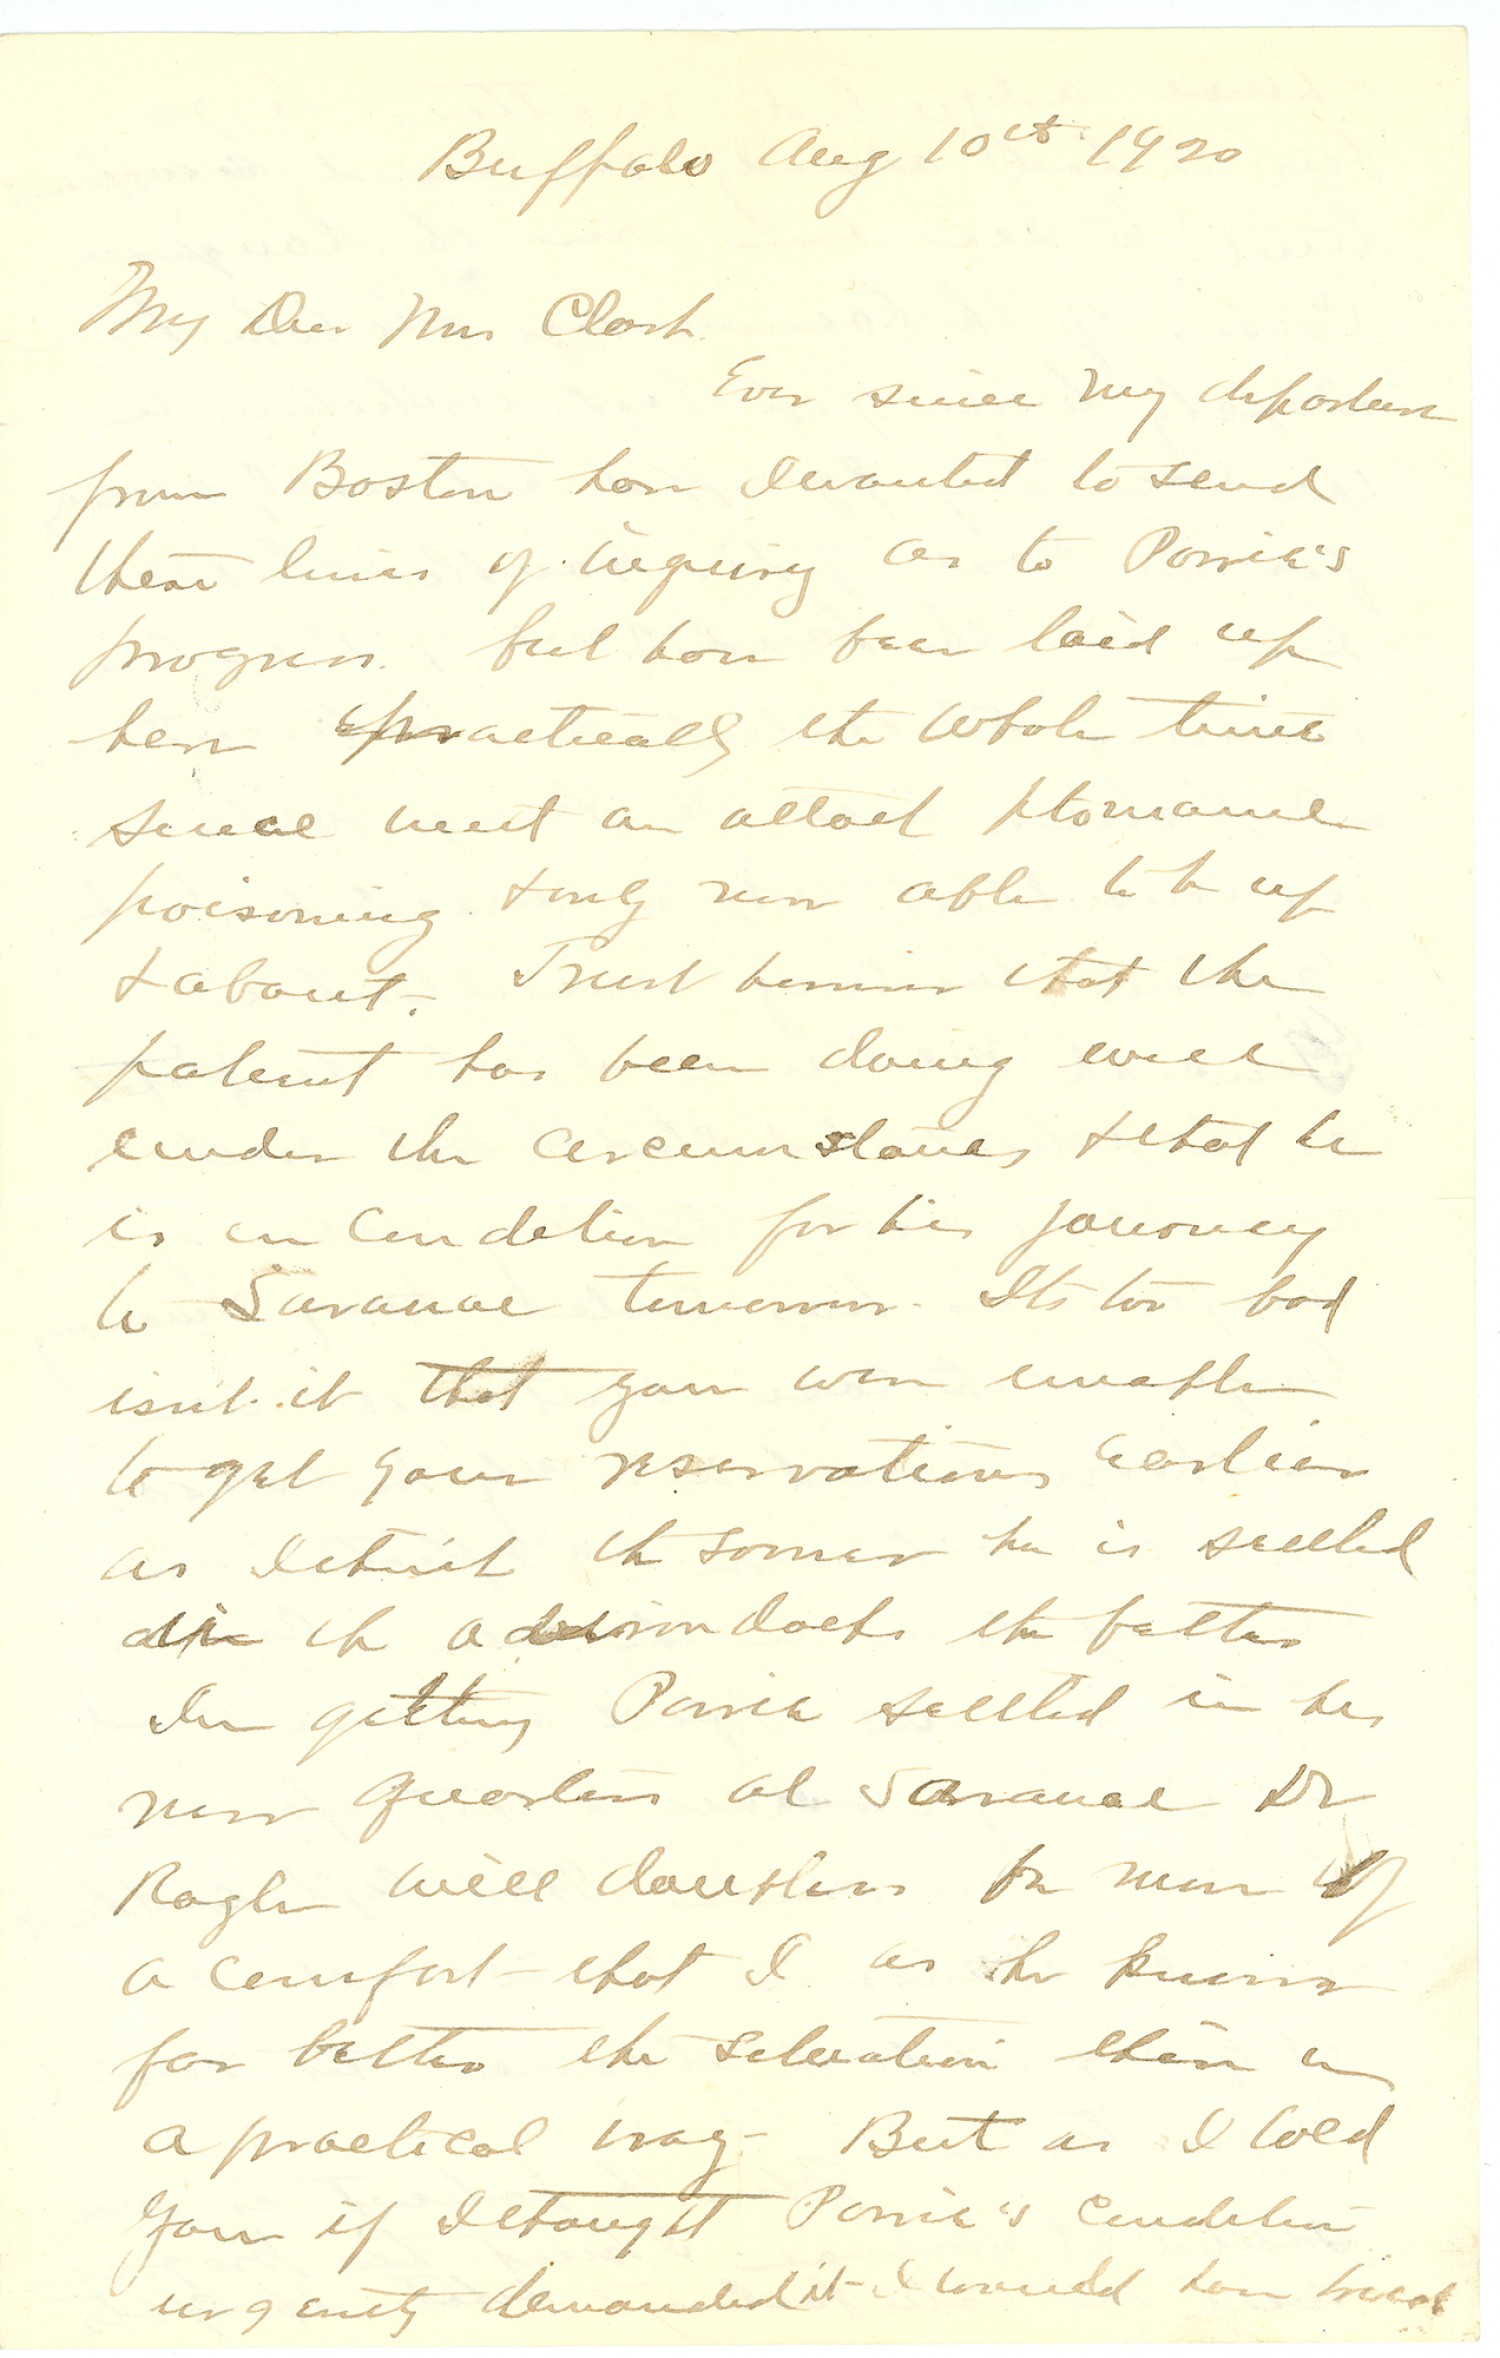 Buffalo Aug 10th 1920
My Dear Mrs Clark.
Ever since my departure
from Boston have I wanted to send
these lines of inquiry as to
progress. but have been laid up
here practically the whole time
since with an attack ptomaine
poisoning & only now able to be up
& about. Trust however that the
patient has been doing well
under the circumstances & that he
is in condition for his journey
to Saranac tomorrow. Its too bad
isnt it that you were unable
to get your reservations earlier
as I think the sooner he is settled
in the Adirondacks the better
In getting settled in his
new quarters at Saranac Dr
will doubtless be more of
a comfort that I as he knows
far better the situation than in
a practical way - But as I told
you if I thought condition
urgently demanded it I would have